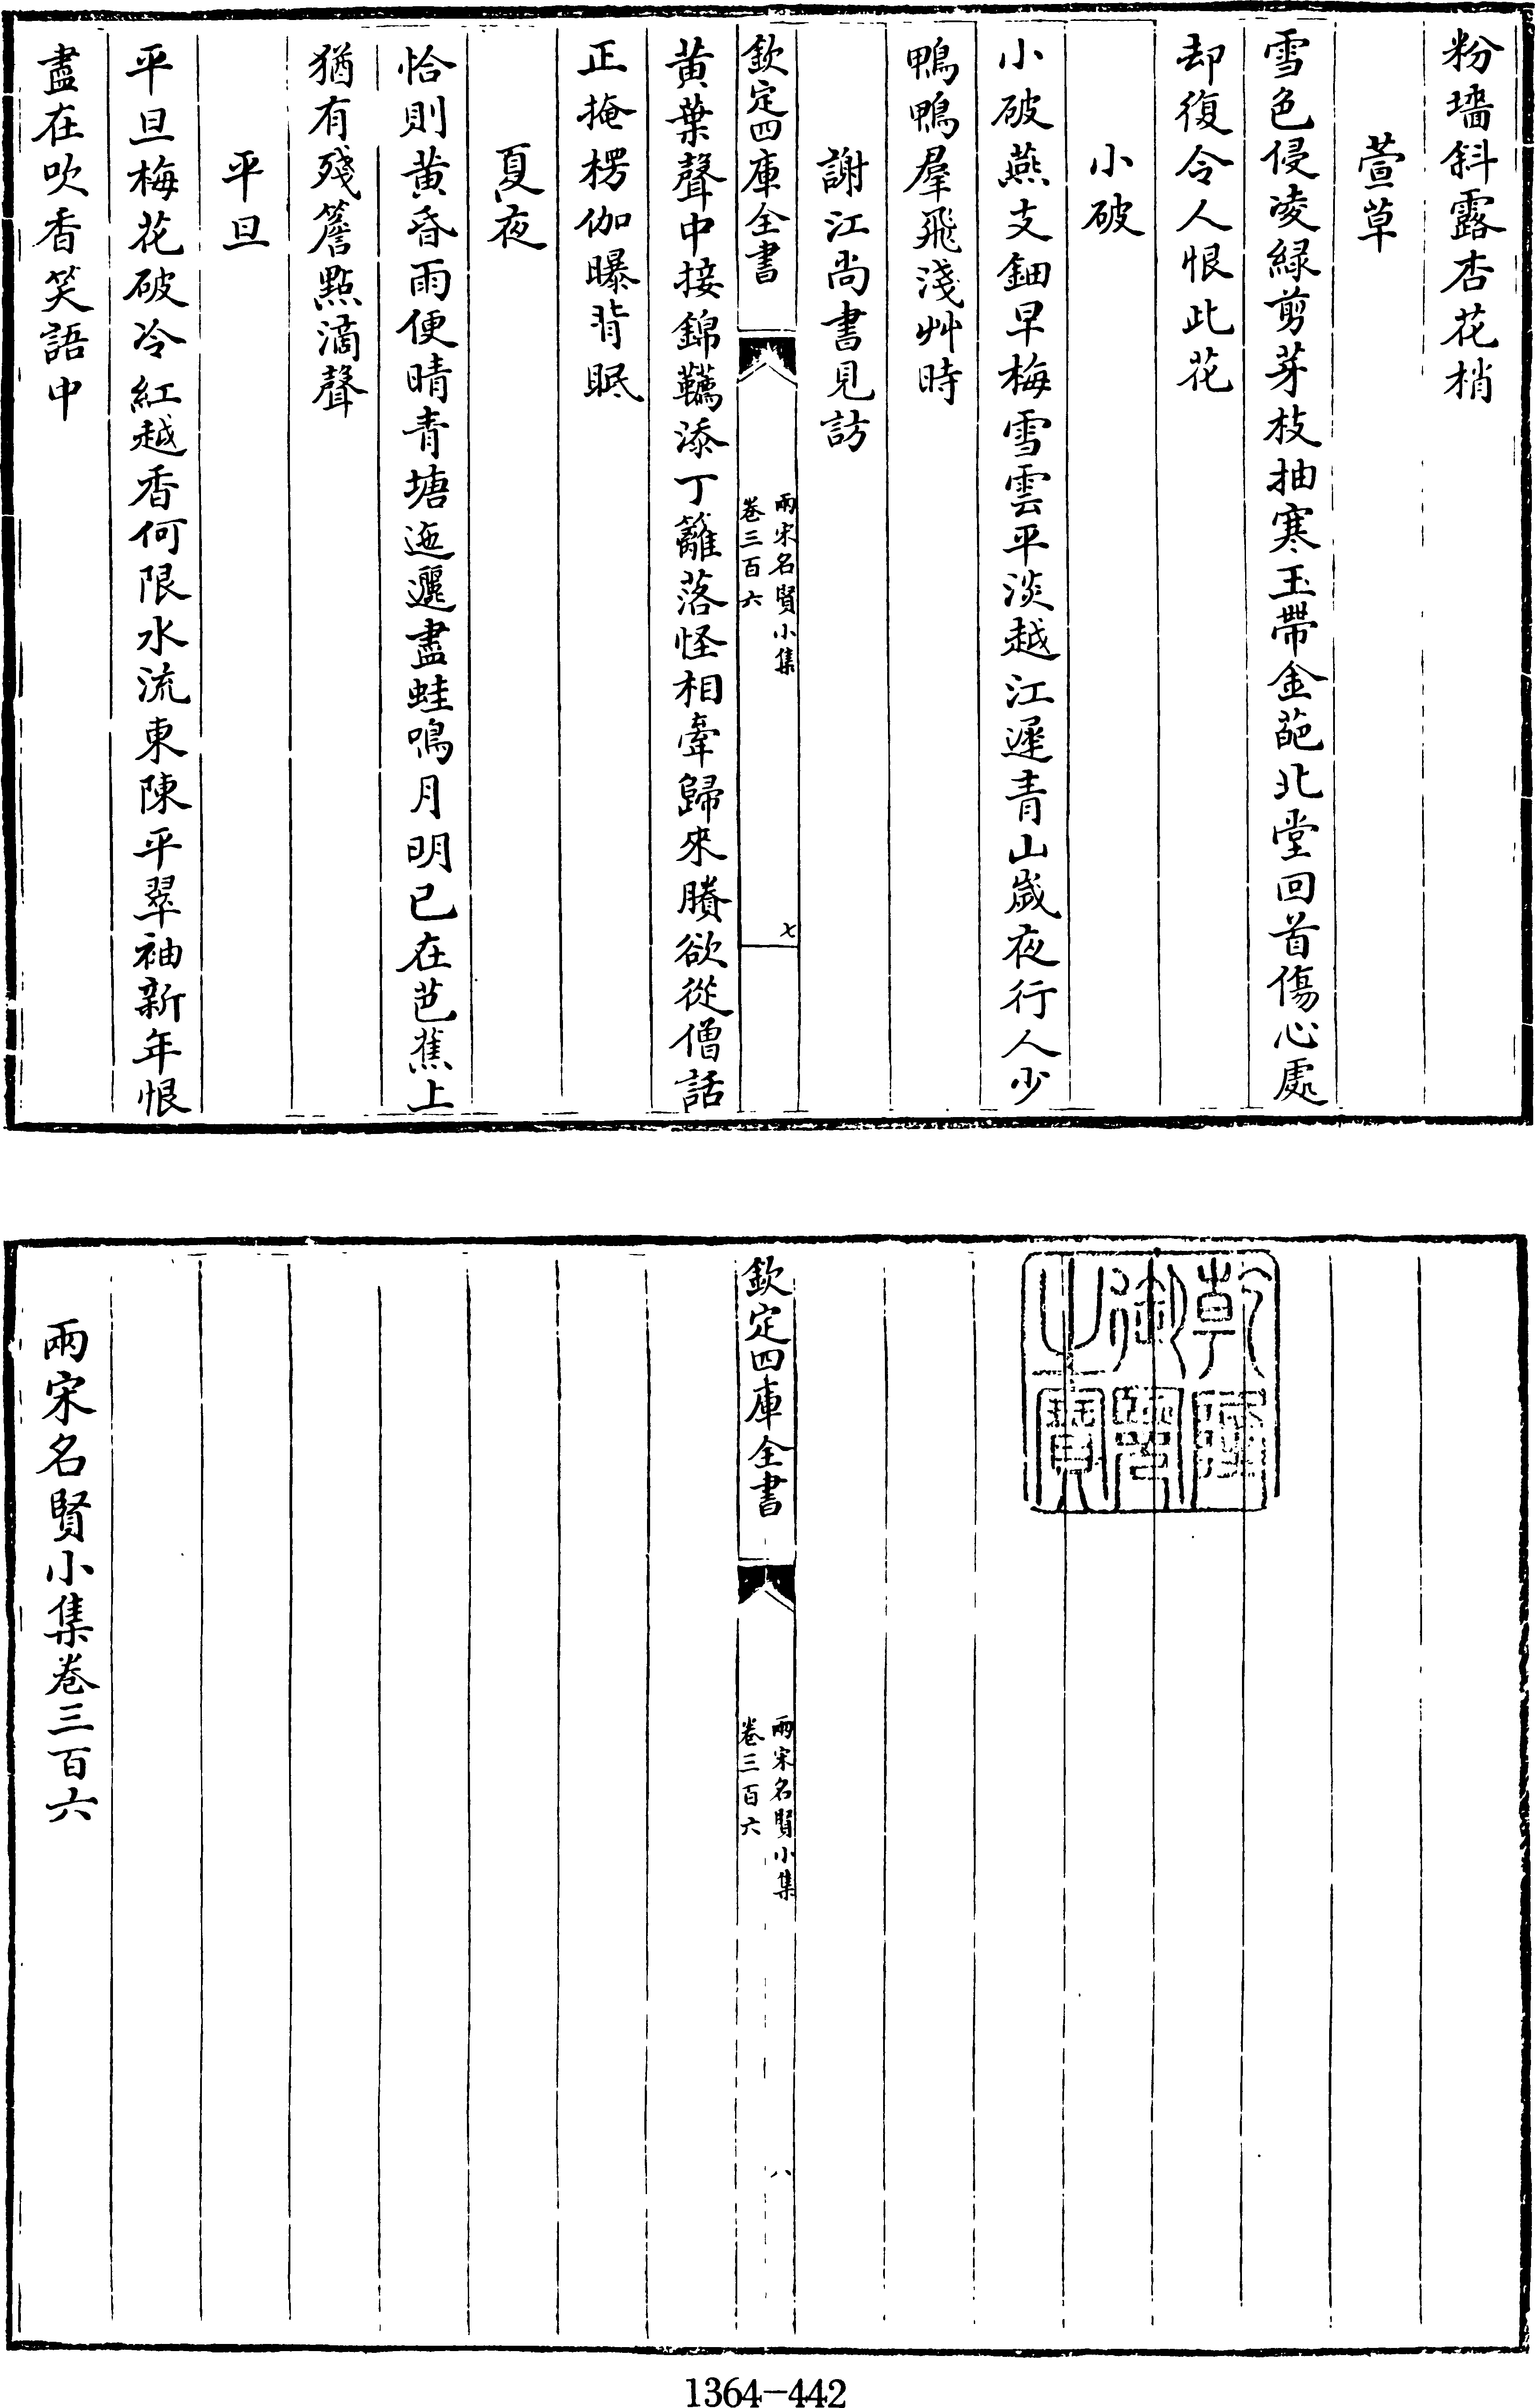 粉墻斜露杏花梢
萱草
雪色侵凌緑剪芽枝抽寒玉帶金葩北堂回首傷心處
却復令人恨此花
小破
小破燕支鈿早梅雪雲平淡越江遲青山歲夜行人少
鴨鴨羣飛淺艸時
謝江尚書見訪
欽定四庫全書
兩宋名賢小集
卷三百六
七
黄葉聲中接錦韉添丁籬落怪相牽歸來賸欲從僧話
正掩楞伽曝背眠
夏夜
恰則黄昏雨便晴青塘迤邐盡蛙鳴月明已在芭蕉上
猶有殘簷點滴聲
平旦
平旦梅花破冷紅越香何限水流東陳平翠袖新年恨
盡在吹香笑語中
乾隆御覽之寶
欽定四庫全書
兩宋名賢小集
卷三百六
八
兩宋名賢小集卷三百六
1364-442